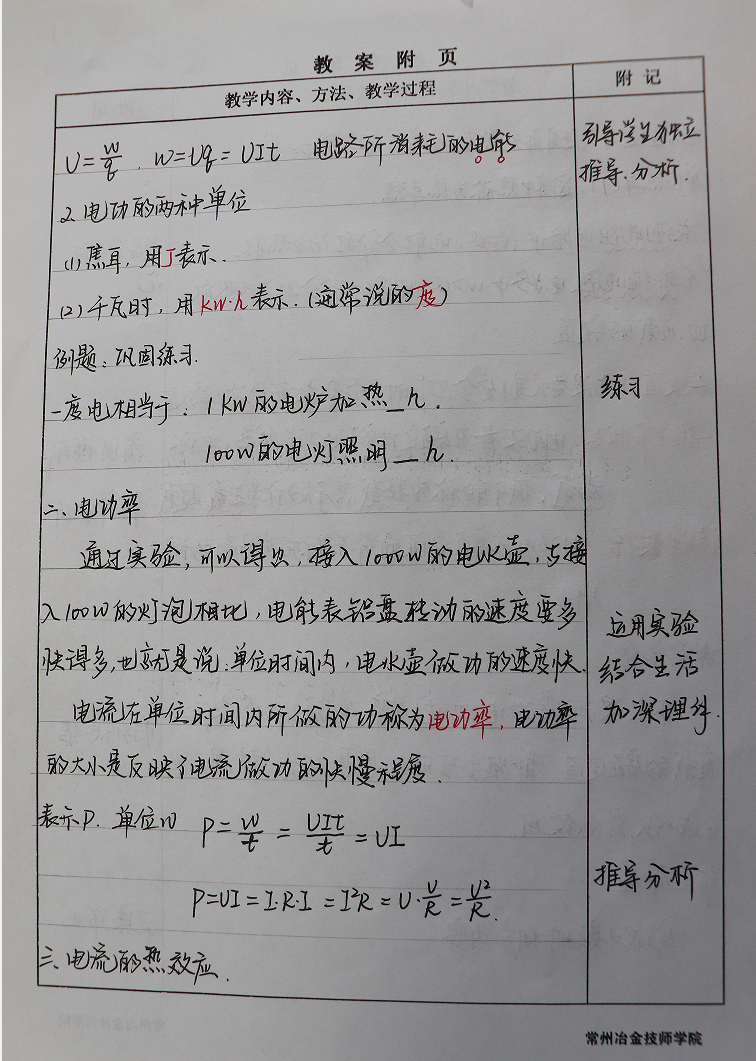 教 案 附 页
教学内容、方法、教学过程
附 记
U=W/q . W=Uq=UIt 电路所消耗的电能
引导学生独立
推导、分析.
2、电功的两种单位
(1)焦耳, 用J表示.
(2)千瓦时, 用KW·h表示. (通常说的度)
例题: 巩固练习.
一度电相当于: 1KW的电炉加热_h.
练习
100W的电灯照明_h.
二、电功率
通过实验, 可以得出, 接入1000W的电水壶, 与接
入100W的灯泡相比, 电能表铝盘转动的速度要多
快得多, 也就是说: 单位时间内, 电水壶做功的速度快.
运用实验
结合生活
加深理解.
电流在单位时间内所做的功称为电功率, 电功率
的大小是反映了电流做功的快慢程度.
表示P. 单位W P=W/t=UIt/t=UI
P=UI=I·R·I=I²R=U·U/R=U²/R.
推导分析
三、电流的热效应.
常州冶金技师学院